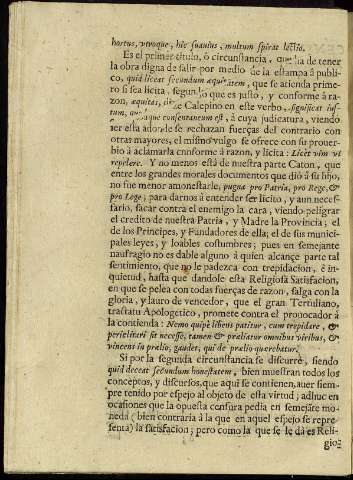 hortus, utroque, hic suavius, multum spirat lectio.
Es el primer titulo, ò circunstancia, que ha de tener
la obra digna de salir por medio de la estampa à publi-
co, quid liceat secundum æquitatem, que se atienda prime-
ro si sea licita, segun lo que es justo, y conforme à ra-
zon, æquitas, dize Calepino en este verbo, significat ius-
tum, quòdque consentaneum est, à cuya judicatura, viendo
ser esta adonde se rechazan fuerças del contrario con
otras mayores, el mismo vulgo se ofrece con su prouer-
bio à aclamarla conforme à razon, y licita: Licèt vim vi
repelere. Y no menos està de nuestra parte Caton, que
entre los grandes morales documentos que diò à su hijo,
no fue menor amonestarle, pugna pro Patria, pro Rege, &
pro Lege; para darnos à entender ser licito, y aun neces-
sario, sacar contra el enemigo la cara, viendo peligrar
el credito de nuestra Patria, y Madre la Provincia; el
de los Principes, y Fundadores de ella; el de sus munici-
pales leyes, y loables costumbres; pues en semejante
naufragio no es dable alguno à quien alcançe parte tal
sentimiento, que no le padezca con trepidacion, è in-
quietud, hasta que dandole esta Religiosa Satisfacion,
en que se pelea con todas fuerças de razon, salga con la
gloria, y lauro de vencedor, que el gran Tertuliano,
tractatu Apologetico, promete contra el provocador à
la contienda: Nemo quipè libens patitur, cum trepidare, &
periclitari sit necesse, tamen & præliatur omnibus viribus, &
vincens in prælio, gaudet, qui de prælio querebatur.
Si por la segunda circunstancia se discurre, siendo
quid deceat secundum honestatem, bien muestran todos los
conceptos, y discursos, que aqui se contienen, auer siem-
pre tenido por espejo al objeto de esta virtud; adhuc en
ocasiones que la opuesta censura pedia en semejãte mo-
neda (bien contraria à la que en aquel espejo se repre-
senta) la satisfacion; pero como la que se le dà es Reli-
gio-